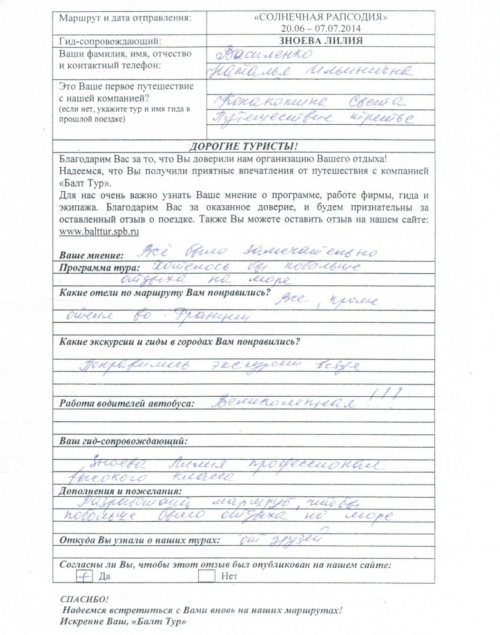 Маршрут и дата отправления: «СОЛНЕЧНАЯ РАПСОДИЯ»
20.06 – 07.07.2014
Гид-сопровождающий: ЗНОЕВА ЛИЛИЯ
Ваши фамилия, имя, отчество Василенко
и контактный телефон: Наталья Ильинична
Это Ваше первое путешествие
с нашей компанией? Конакотина Света
(если нет, укажите тур и имя гида в Путешествие
прошлой поездке)
ДОРОГИЕ ТУРИСТЫ!
Благодарим Вас за то, что Вы доверили нам организацию Вашего отдыха!
Надеемся, что Вы получили приятные впечатления от путешествия с компанией
«Балт Тур».
Для нас очень важно узнать Ваше мнение о программе, работе фирмы, гида и
экипажа. Благодарим Вас за оказанное доверие, и будем признательны за
оставленный отзыв о поездке. Также Вы можете оставить отзыв на нашем сайте:
www.balttur.spb.ru
Ваше мнение: Всё было замечательно
Программа тура: Хотелось бы побольше
отдыха на море
Какие отели по маршруту Вам понравились? Все, кроме
отеля во Франции
Какие экскурсии и гиды в городах Вам понравились?
Понравились экскурсии везде
Работа водителей автобуса: Великолепная!!!
Ваш гид-сопровождающий:
Зноева Лилия профессионал
высокого класса
Дополнения и пожелания:
Разработать маршрут, чтобы
побольше было отдыха на море
Откуда Вы узнали о наших турах: от друзей
Согласны ли Вы, чтобы этот отзыв был опубликован на нашем сайте:
+ Да Нет
СПАСИБО!
Надеемся встретиться с Вами вновь на наших маршрутах!
Искренне Ваш, «Балт Тур»